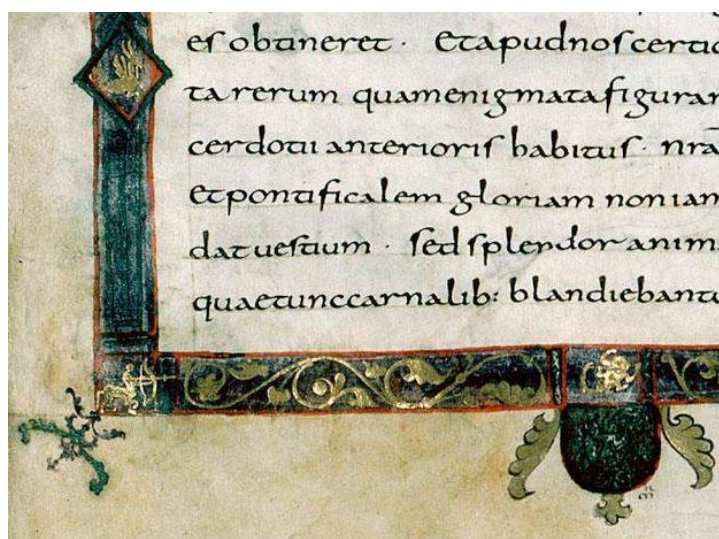 es obtineret · Et apud nos certio
ta rerum quam enigmata figurar
cerdotii anterioris habitus · nrā
Et pontificalem gloriam non iam
dat uestium · sed splendor anima
quae tunc carnalib: blandiebantu